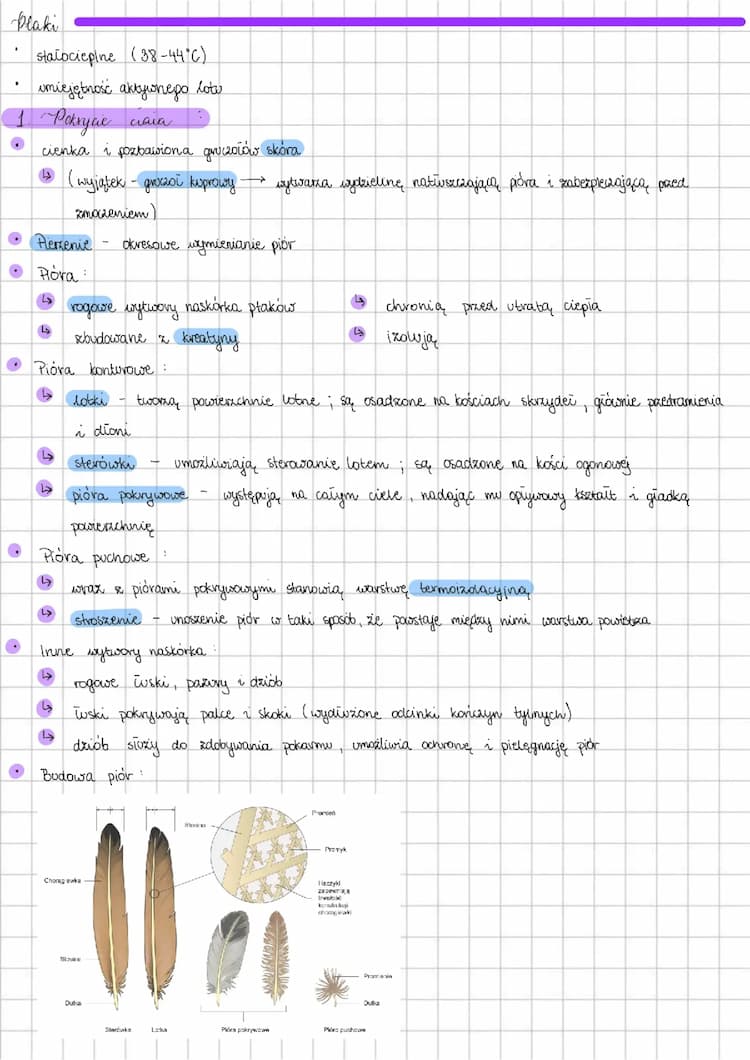 Ptaki
stałocieplne (38-44°C)
umiejętność aktywnego lotu
1. Pokrycie ciała :
cienka i pozbawiona gruczołów skóra
(wyjątek - gruczoł kuprowy → wytwarza wydzielinę natłuszczającą pióra i zabezpieczającą przed
zmoczeniem)
Pierzenie - okresowe wymienianie piór
Pióra :
rogowe wytwory naskórka ptaków
zbudowane z kreatyny
chronią przed utratą ciepła
izolują
Pióra konturowe :
lotki - tworzą powierzchnie lotne ; są osadzone na kościach skrzydeł , głównie przedramienia
i dłoni
sterówki - umożliwiają sterowanie lotem ; są osadzone na kości ogonowej
pióra pokrywowe - występują na całym ciele , nadając mu opływowy kształt i gładką
powierzchnię
Pióra puchowe :
wraz z piórami pokrywowymi stanowią warstwę termoizolacyjną
stroszenie - unoszenie piór w taki sposób, że powstaje między nimi warstwa powietrza
Inne wytwory naskórka :
rogowe łuski, pazury i dziób
łuski pokrywają palce i skoki (wydłużone odcinki kończyn tylnych)
dziób służy do zdobywania pokarmu , umożliwia ochronę i pielęgnację piór
Budowa piór :
Promień
Stosina
Promyk
Chorągiewka
Haczyki
zapewniają
trwałość
konstrukcji
chorągiewki
Stosina
Promienie
Dutka
Dutka
Sterówka
Lotka
Pióra pokrywowe
Pióro puchowe